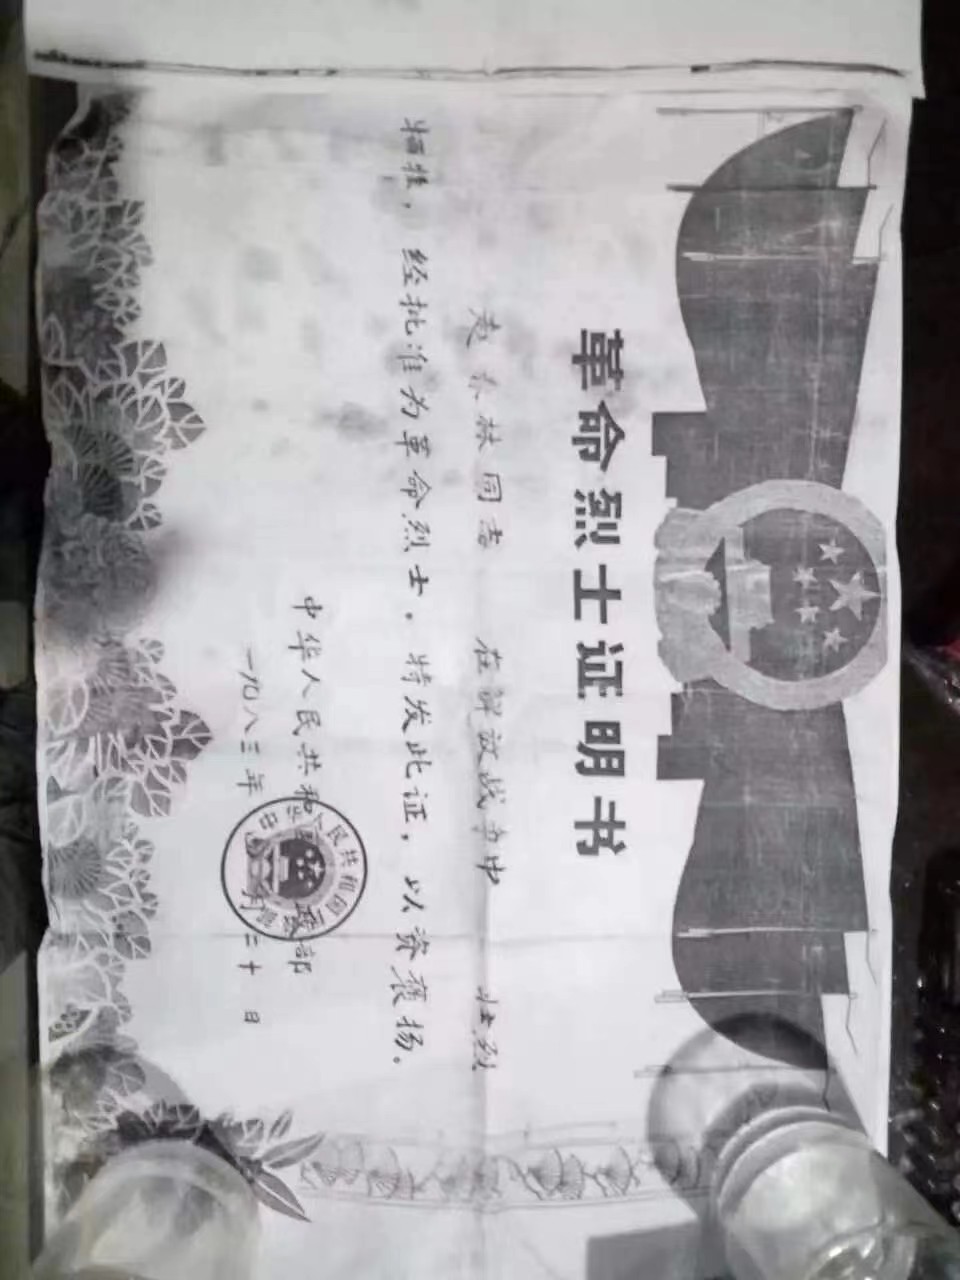 革命烈士证明书
林同志 在解放战争中 壮烈
牺牲，经批准为革命烈士．特发此证，以资褒扬。
中华人民共和 政部
一九八三年 月三十日
中华人民共和国